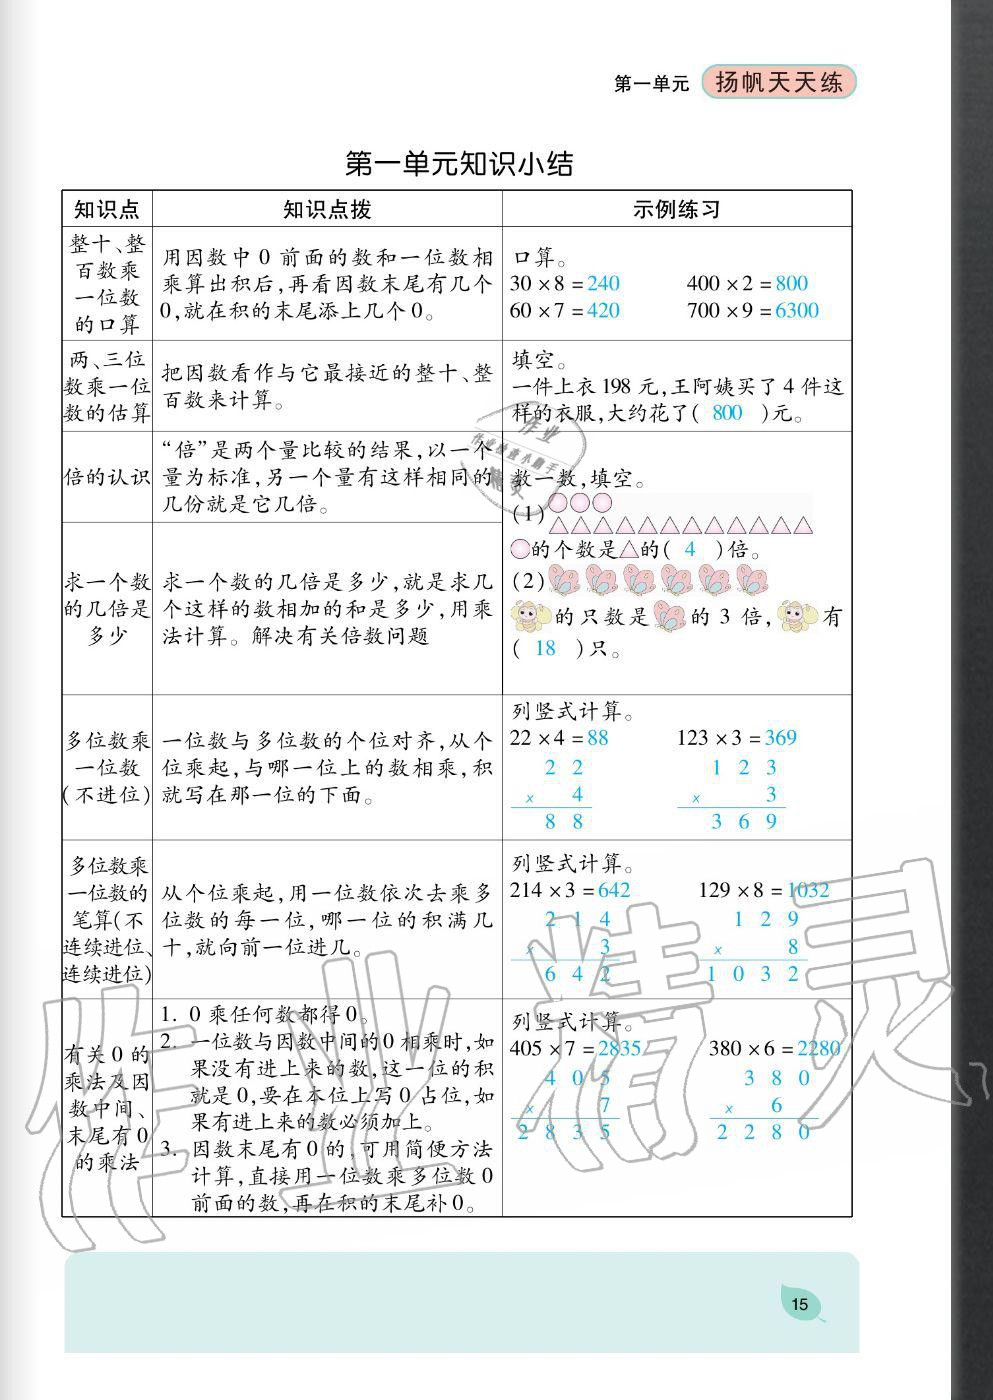 第一单元 扬帆天天练
第一单元知识小结
知识点 知识点拨 示例练习
整十、整
百数乘
一位数
的口算
用因数中0前面的数和一位数相
乘算出积后,再看因数末尾有几个
0,就在积的末尾添上几个0。
口算。
30×8=240 400×2=800
60×7=420 700×9=6300
两、三位
数乘一位
数的估算
把因数看作与它最接近的整十、整
百数来计算。
填空。
一件上衣198元,王阿姨买了4件这
样的衣服,大约花了( 800 )元。
倍的认识
“倍”是两个量比较的结果,以一个
量为标准,另一个量有这样相同的
几份就是它几倍。
数一数,填空。
(1)
的个数是△的( 4 )倍。
(2)
的只数是 的3倍, 有
( 18 )只。
求一个数
的几倍是
多少
求一个数的几倍是多少,就是求几
个这样的数相加的和是多少,用乘
法计算。解决有关倍数问题
多位数乘
一位数
(不进位)
一位数与多位数的个位对齐,从个
位乘起,与哪一位上的数相乘,积
就写在那一位的下面。
列竖式计算。
22×4=88 123×3=369
2 2 1 2 3
× 4 × 3
8 8 3 6 9
多位数乘
一位数的
笔算(不
连续进位、
连续进位)
从个位乘起,用一位数依次去乘多
位数的每一位,哪一位的积满几
十,就向前一位进几。
列竖式计算。
214×3=642 129×8=1032
2 1 4 1 2 9
× 3 × 8
6 4 2 1 0 3 2
有关0的
乘法及因
数中间、
末尾有0
的乘法
1. 0乘任何数都得0。
2. 一位数与因数中间的0相乘时,如
果没有进上来的数,这一位的积
就是0,要在本位上写0占位,如
果有进上来的数必须加上。
3. 因数末尾有0的,可用简便方法
计算,直接用一位数乘多位数0
前面的数,再在积的末尾补0。
列竖式计算。
405×7=2835 380×6=2280
4 0 5 3 8 0
× 7 × 6
2 8 3 5 2 2 8 0
作业精灵
15